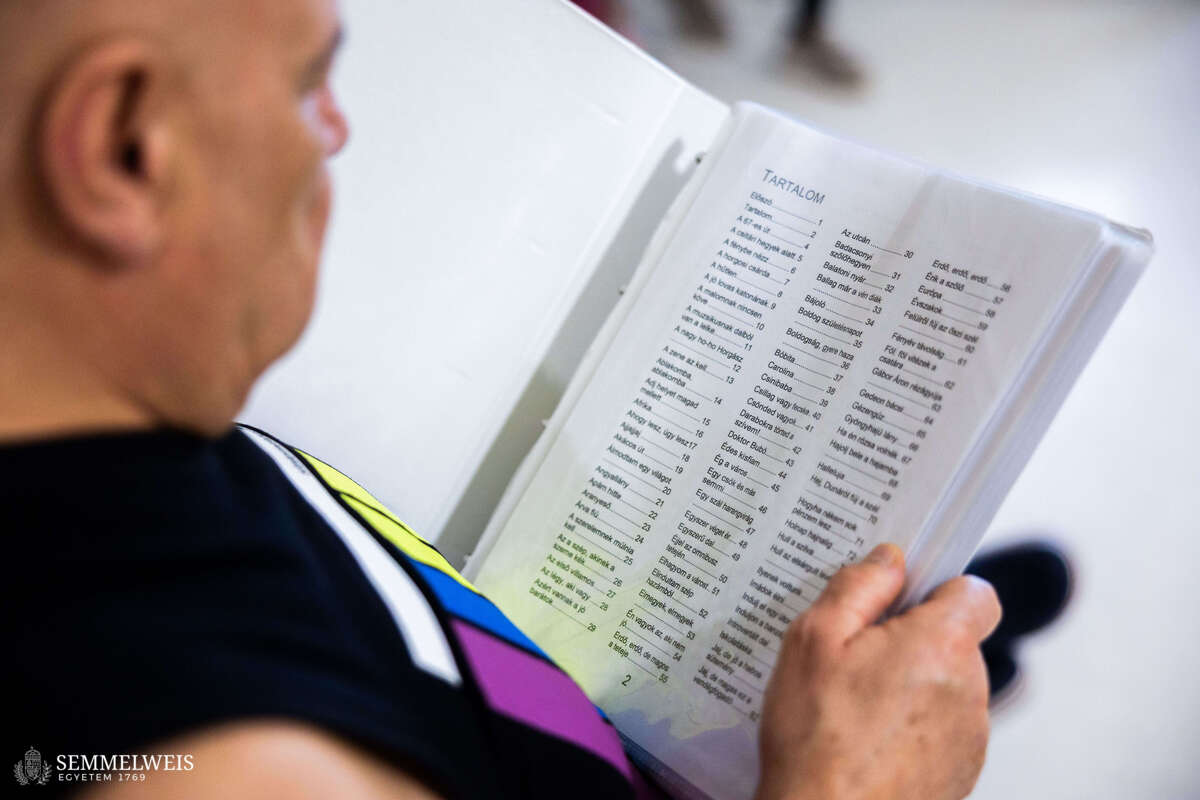 TARTALOM
Előszó 1
Tartalom 2
A 67-es út 4
A csitári hegyek alatt 5
A fénybe nézz 6
A horgosi csárda 7
A hűtlen 8
A jó lovas katonának 9
A malomnak nincsen
köve 10
A muzsikusnak dalból
van a lelke 11
A nagy ho-ho Horgász
12
A zene az kell 13
Ablakomba,
ablakomba 14
Adj helyet magad
mellett 15
Afrika 16
Ahogy lesz, úgy lesz 17
Ajjajjaj 18
Akácos út 19
Álmodtam egy világot
20
Angyallány 21
Apám hitte 22
Aranyeső 23
Árva fiú 24
A szerelemnek múlnia
kell 25
Az a szép, akinek a
szeme kék 26
Az első villamos 27
Az légy, aki vagy 28
Azért vannak a jó
barátok 29
Az utcán 30
Badacsonyi
szőlőhegyen 31
Balatoni nyár 32
Ballag már a vén diák
33
Bájoló 34
Boldog születésnapot
35
Boldogság, gyere haza
36
Bóbita 37
Carolina 38
Csinibaba 39
Csillag vagy fecske 40
Csönded vagyok 41
Darabokra törted a
szívem! 42
Doktor Bubó 43
Édes kisfiam 44
Ég a város 45
Egy csók és más
semmi 46
Egy szál harangvirág
47
Egyszer véget ér 48
Egyszerű dal 49
Éjjel az omnibusz
tetején 50
Elhagyom a várost 51
Elindultam szép
hazámból 52
Elmegyek, elmegyek
53
Én vagyok az, aki nem
jó 54
Erdő, erdő, de magos
a teteje 55
Erdő, erdő, erdő 56
Érik a szőlő 57
Európa 58
Évszakok 59
Felülről fúj az őszi szél
60
Fényév távolság 61
Föl, föl vitézek a
csatára 62
Gábor Áron rézágyúja
63
Gedeon bácsi 64
Gézengúz 65
Gyöngyhajú lány 66
Ha én rózsa volnék 67
Hajolj bele a hajamba
68
Halleluja 69
Hej, Dunáról fúj a szél
70
Hogyha nékem sok
pénzem lesz 71
Holnap hajnalig 72
Hull a szilva
Hull az elsárgult
Ilyenek voltunk
Imádok élni
Indul egy
Induljon a
Jaj, de jó a habos
sütemény
Jaj, de magas ez a
vendégfogadó
2
SEMMELWEIS
EGYETEM 1769